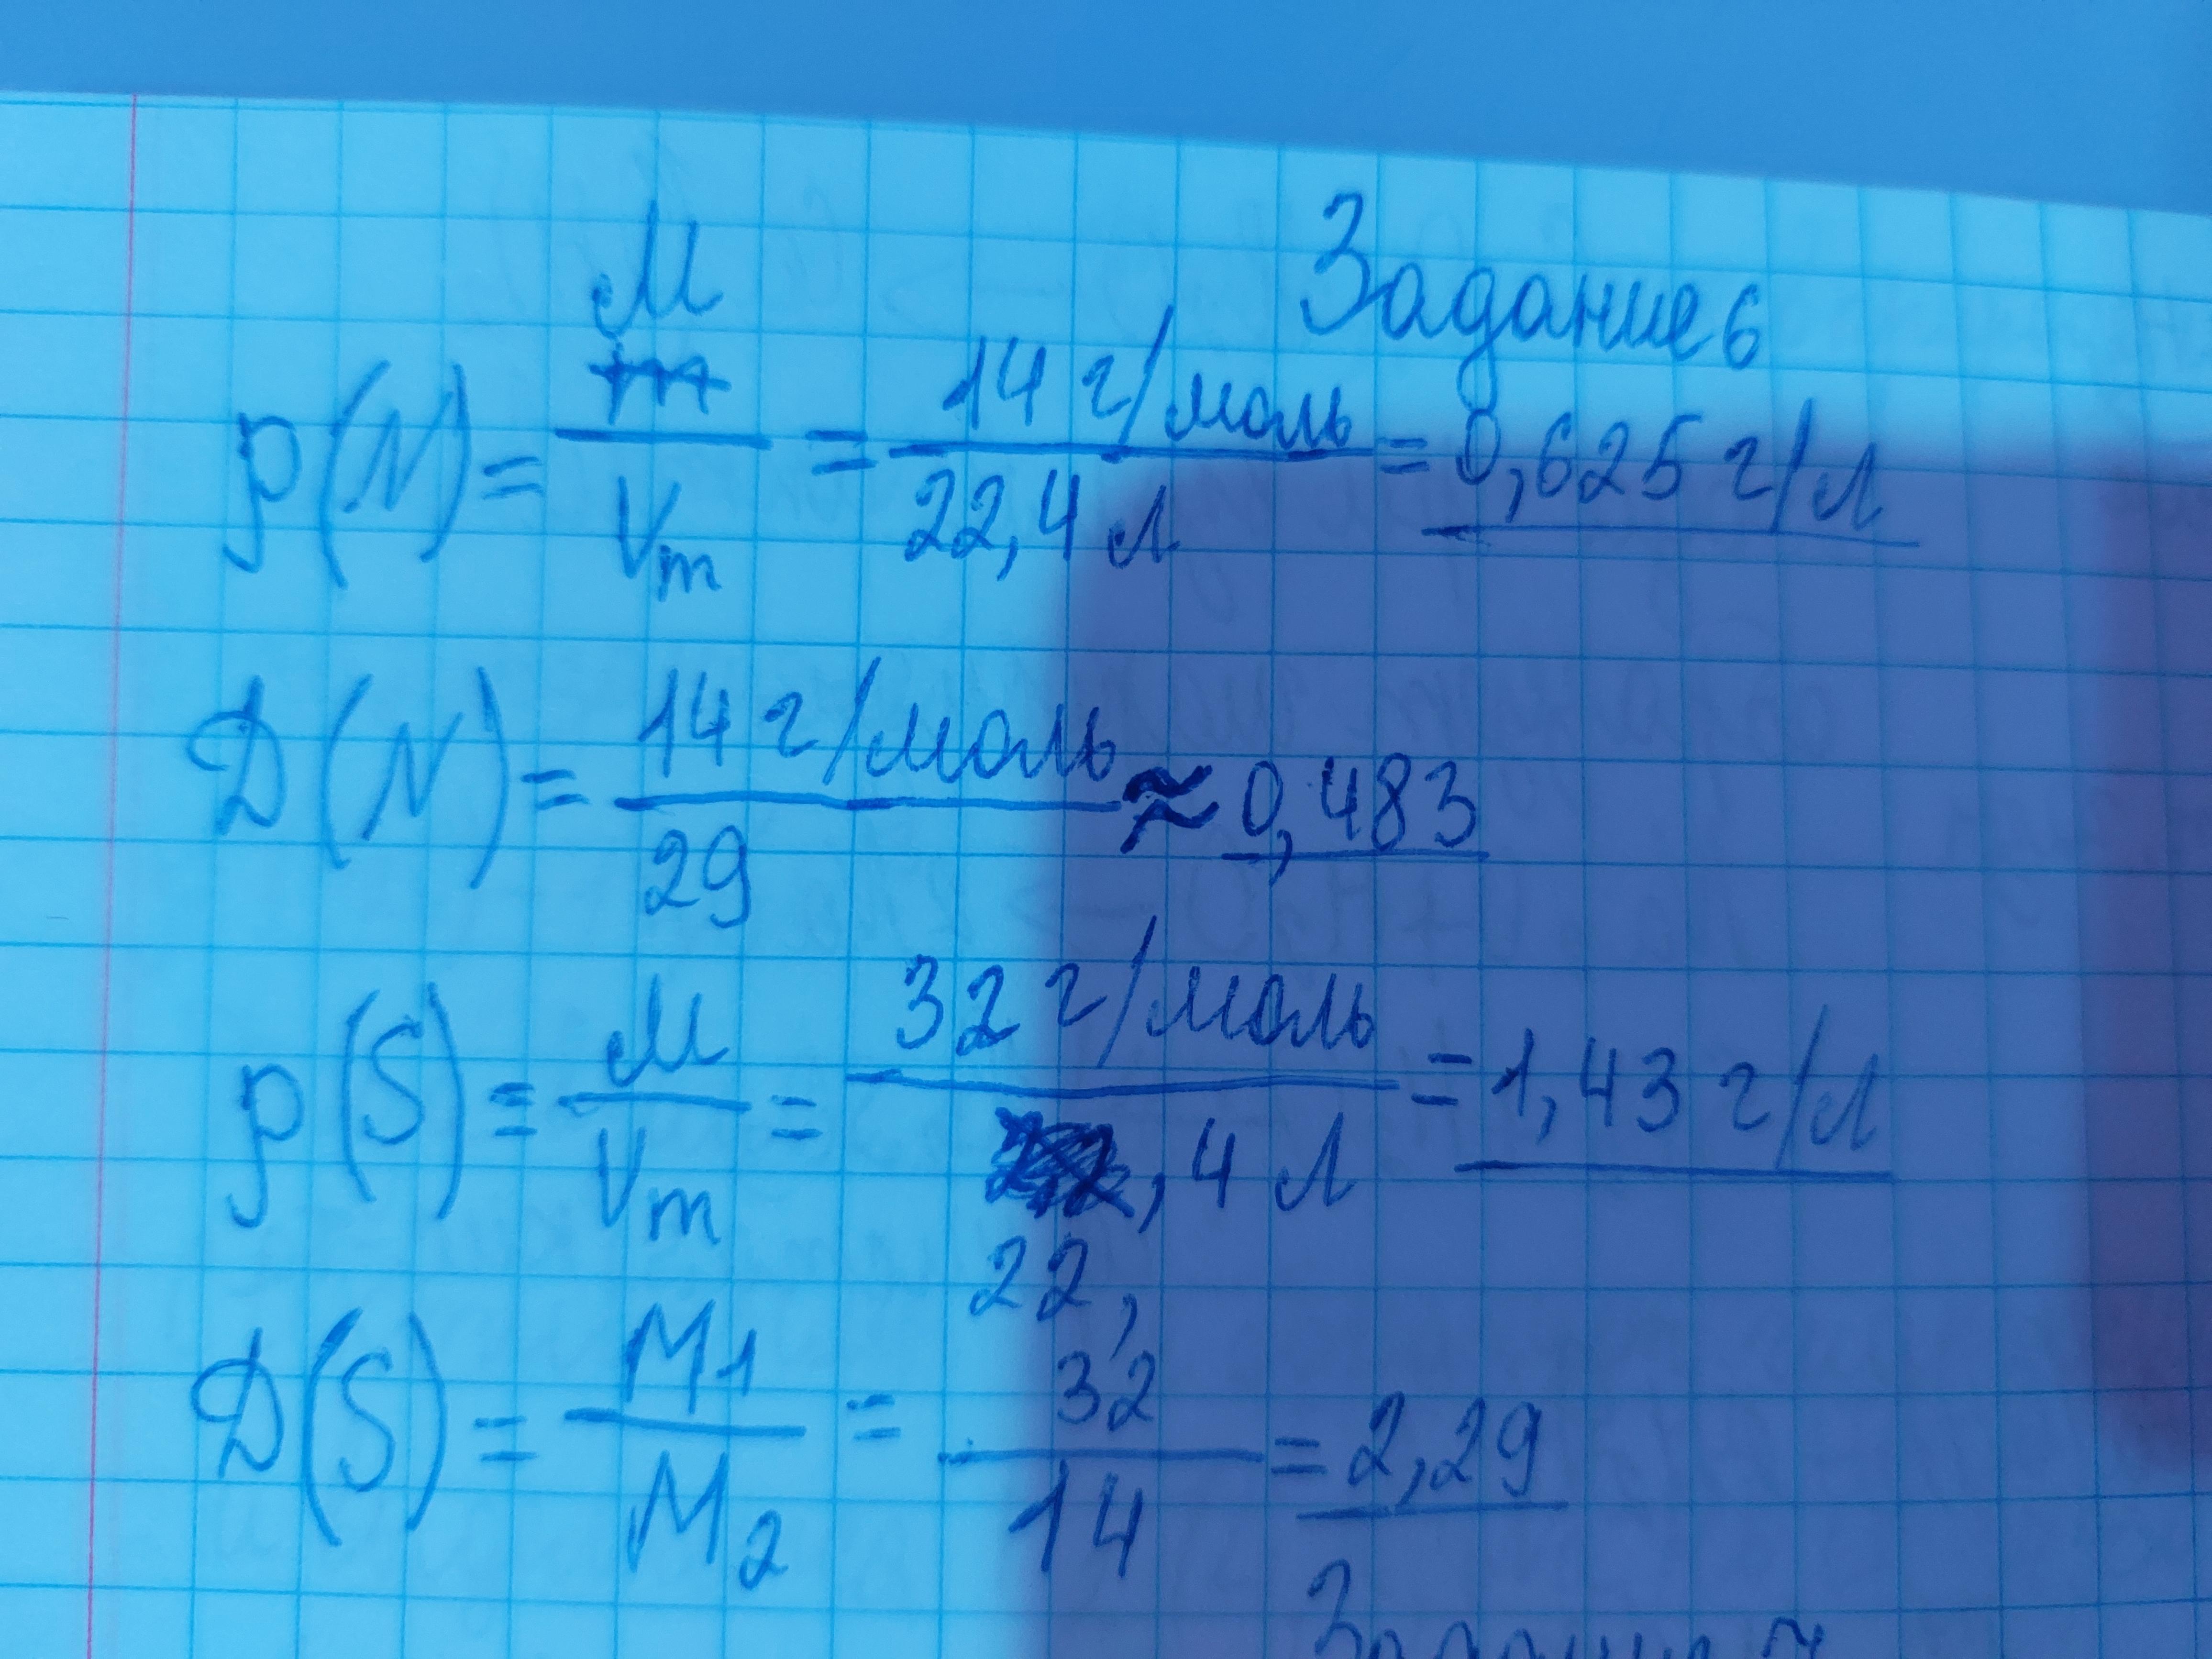 Задание 6
p(N) = M / Vm = 14 г/моль / 22,4 л = 0,625 г/л
D(N) = 14 г/моль / 29 ≈ 0,483
p(S) = M / Vm = 32 г/моль / 22,4 л = 1,43 г/л
D(S) = M1 / M2 = 32 / 14 = 2,29